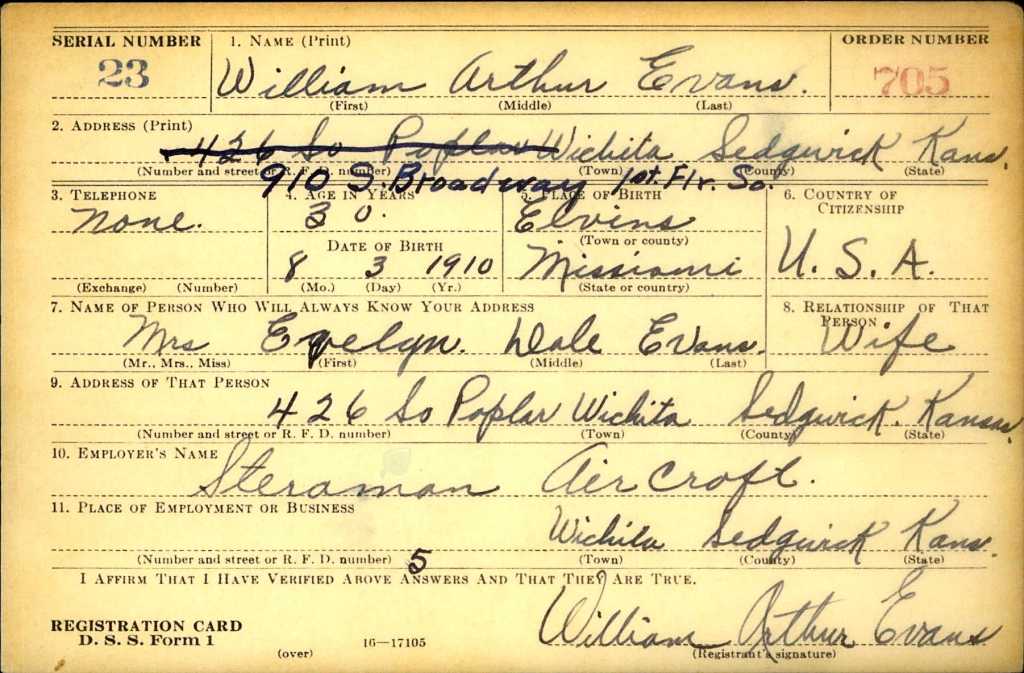 SERIAL NUMBER 1. NAME (Print) ORDER NUMBER
23 William Arthur Evans. 705
(First) (Middle) (Last)
2. ADDRESS (Print)
426 So Poplar Wichita Sedgwick Kans.
(Number and street or R. F. D. number) (Town) (County) (State)
910 S. Broadway 1st. Flr. So.
3. TELEPHONE 4. AGE IN YEARS 5. PLACE OF BIRTH 6. COUNTRY OF CITIZENSHIP
None. 30. Elvins
(Town or county)
DATE OF BIRTH
8 3 1910 Missouri U. S. A.
(Exchange) (Number) (Mo.) (Day) (Yr.) (State or country)
7. NAME OF PERSON WHO WILL ALWAYS KNOW YOUR ADDRESS 8. RELATIONSHIP OF THAT PERSON
Mrs Evelyn. Dale Evans. Wife
(Mr., Mrs., Miss) (First) (Middle) (Last)
9. ADDRESS OF THAT PERSON
426 So Poplar Wichita Sedgwick. Kansas.
(Number and street or R. F. D. number) (Town) (County) (State)
10. EMPLOYER'S NAME
Steraman Air Craft.
11. PLACE OF EMPLOYMENT OR BUSINESS
Wichita Sedgwick Kans.
(Number and street or R. F. D. number) (Town) (County) (State)
5
I AFFIRM THAT I HAVE VERIFIED ABOVE ANSWERS AND THAT THEY ARE TRUE.
REGISTRATION CARD William Arthur Evans
D. S. S. Form 1 16—17105 (Registrant's signature)
(over)